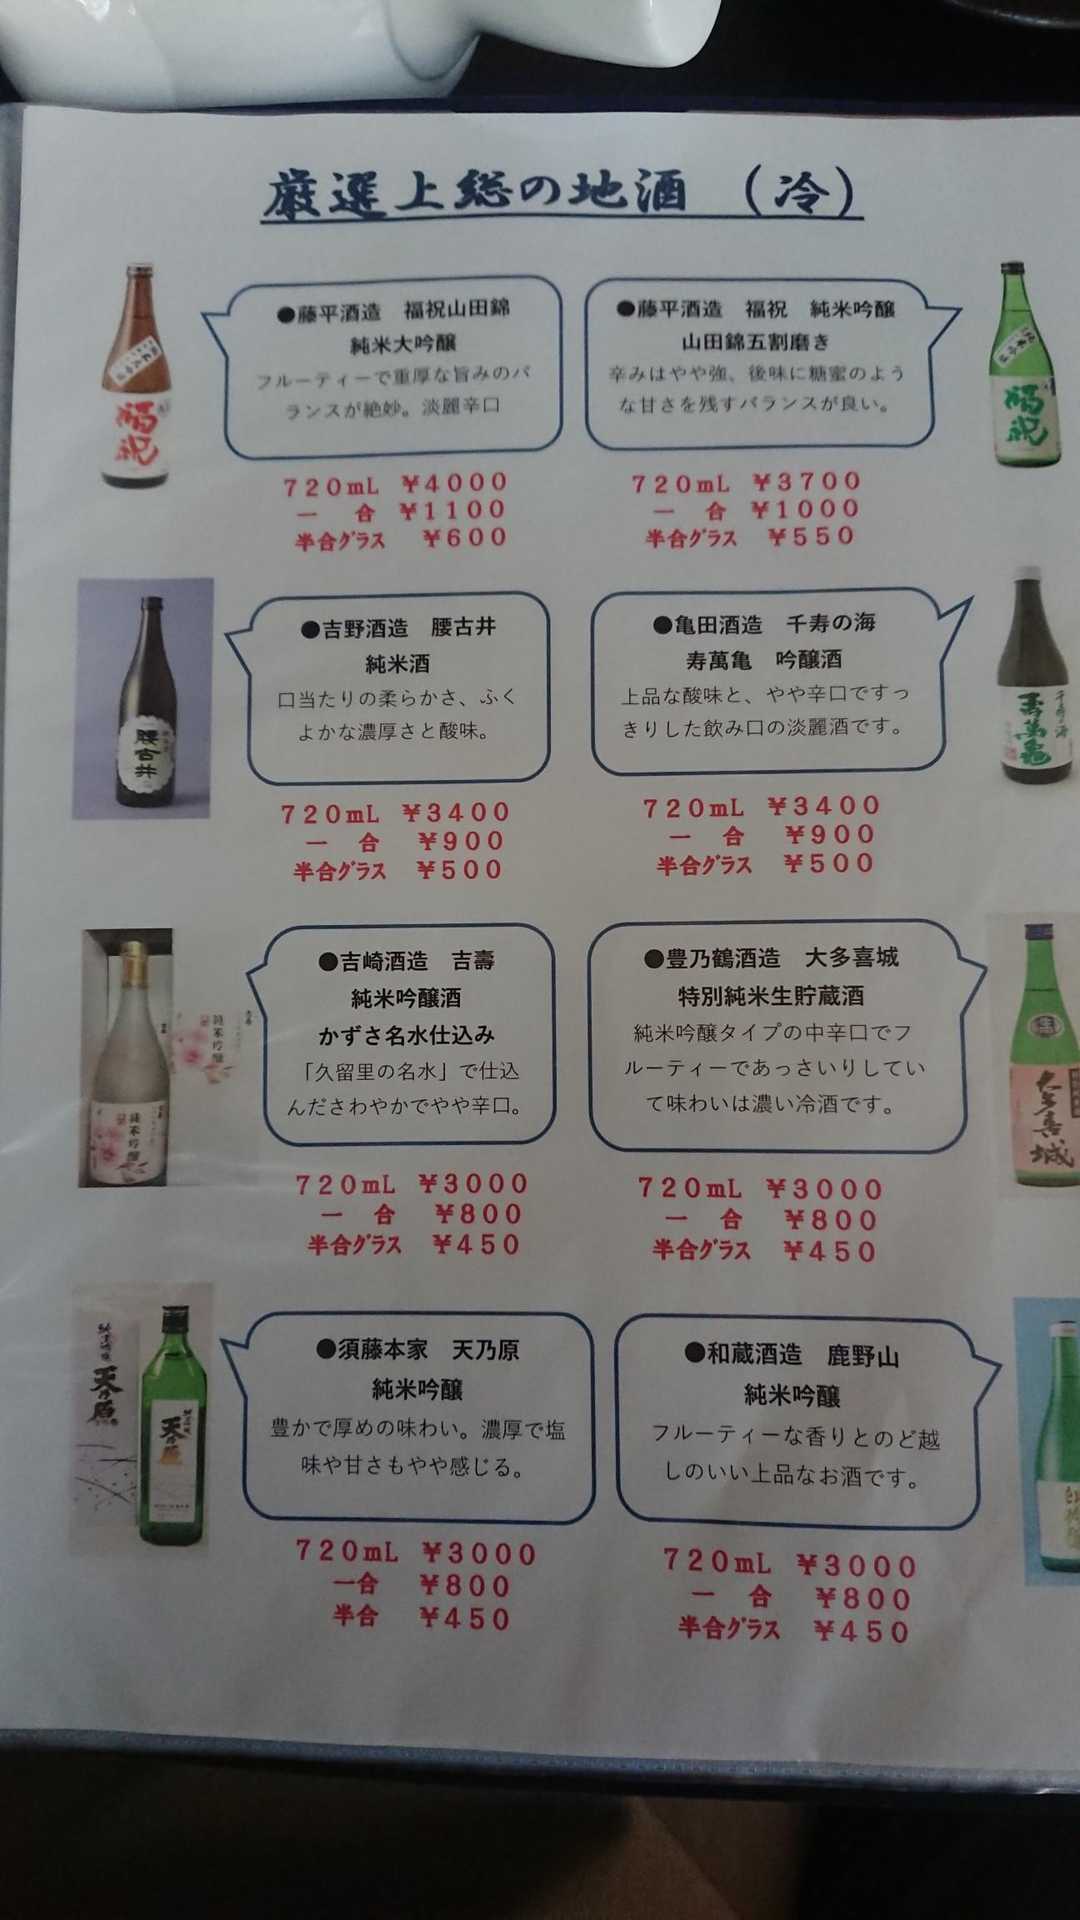 厳選上総の地酒 (冷)
●藤平酒造 福祝山田錦
純米大吟醸
フルーティーで重厚な旨みのバ
ランスが絶妙。淡麗辛口
720mL ¥4000
一 合 ¥1100
半合グラス ¥600
●藤平酒造 福祝 純米吟醸
山田錦五割磨き
辛みはやや強、後味に糖蜜のよう
な甘さを残すバランスが良い。
720mL ¥3700
一 合 ¥1000
半合グラス ¥550
福祝
福祝
●吉野酒造 腰古井
純米酒
口当たりの柔らかさ、ふく
よかな濃厚さと酸味。
720mL ¥3400
一 合 ¥900
半合グラス ¥500
腰古井
●亀田酒造 千寿の海
寿萬亀 吟醸酒
上品な酸味と、やや辛口ですっ
きりした飲み口の淡麗酒です。
720mL ¥3400
一 合 ¥900
半合グラス ¥500
千寿の海
寿萬亀
●吉崎酒造 吉壽
純米吟醸酒
かずさ名水仕込み
「久留里の名水」で仕込
んださわやかでやや辛口。
720mL ¥3000
一 合 ¥800
半合グラス ¥450
純米吟醸
純米吟醸
●豊乃鶴酒造 大多喜城
特別純米生貯蔵酒
純米吟醸タイプの中辛口でフ
ルーティーであっさいりしてい
て味わいは濃い冷酒です。
720mL ¥3000
一 合 ¥800
半合グラス ¥450
生
大多喜城
●須藤本家 天乃原
純米吟醸
豊かで厚めの味わい。濃厚で塩
味や甘さもやや感じる。
720mL ¥3000
一合 ¥800
半合 ¥450
純米吟醸
天乃原
天乃原
●和蔵酒造 鹿野山
純米吟醸
フルーティーな香りとのど越
しのいい上品なお酒です。
720mL ¥3000
一 合 ¥800
半合グラス ¥450